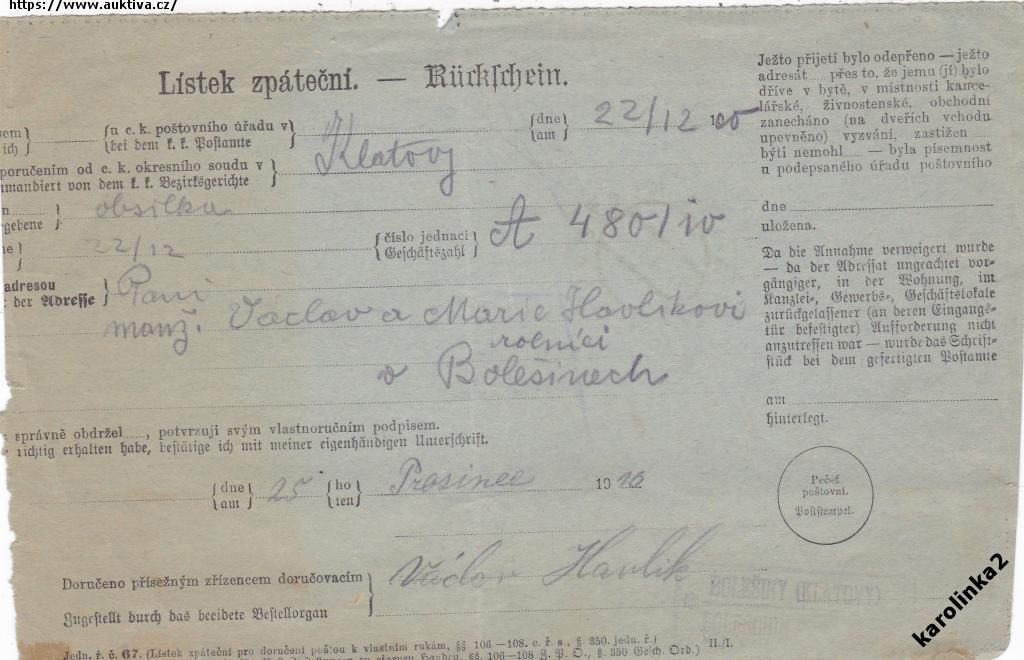 https://www.auktiva.cz/
Lístek zpáteční. — Rückschein.
u c. k. poštovního úřadu v
bei dem k. k. Postamte
Klatovy
dne
am
22/12
poručením od c. k. okresního soudu v
mmandiert von dem k. k. Bezirksgerichte
obsilka
gebene
22/12
číslo jednací
Geschäftszahl
A 480/10
adresou
der Adresse
Paní
manž. Václav a Marie Havlíkovi
rolníci
v Bolešinech
správně obdržel , potvrzuji svým vlastnoručním podpisem.
richtig erhalten habe, bestätige ich mit meiner eigenhändigen Unterschrift.
dne
am
25
ho
ten
Prosince
1910
Doručeno přísežným zřízencem doručovacím
Zugestellt durch das beeidete Bestellorgan
Václav Havlík
Jedn. ř. č. 67. (Lístek zpáteční pro doručení poštou k vlastním rukám, §§ 106—108. c. ř. s., §. 350. jedn. ř.)
§§ 106—108 Z. P. O., § 350 Gesch. Ord.)
II./I.
Ježto přijetí bylo odepřeno — ježto
adresát přes to, že jemu (jí) bylo
dříve v bytě, v místnosti kance-
lářské, živnostenské, obchodní
zanecháno (na dveřích vchodu
upevněno) vyzvání, zastižen
býti nemohl — byla písemnost
u podepsaného úřadu poštovního
dne
uložena.
Da die Annahme verweigert wurde
— da der Adressat ungeachtet vor-
gängiger, in der Wohnung, im
Kanzlei-, Gewerbs-, Geschäftslokale
zurückgelassener (an deren Eingangs-
tür befestigter) Aufforderung nicht
anzutreffen war — wurde das Schrift-
stück bei dem gefertigten Postamte
am
hinterlegt.
Pečeť
poštovní.
Poststempel.
karolinka2